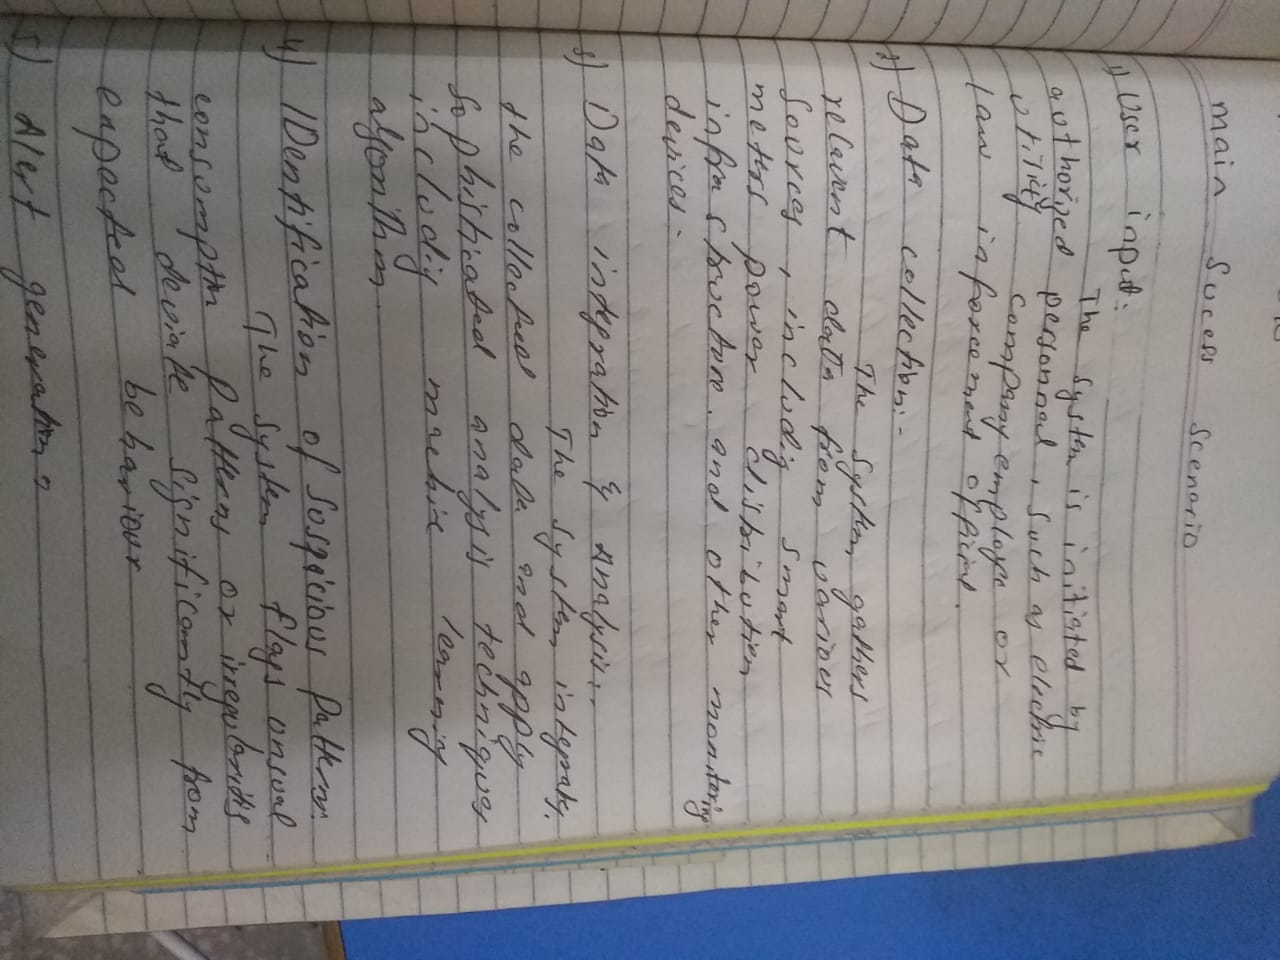 main Sucess Scenario
1) User input:
The system is initiated by
authorized personnal, such as electric
utility company employe or
law inforcement official.
2) Data collection:-
The system gathers
relavent data from varioes
Sources, includig smart
meters power distribution
infrastructure, and other monitoring
devices.
3) Data integration & analysis:-
The system integrate.
the collected data and apply
sophisticated analysis techniques
includig machine learning
algorithm.
4) IDentification of Suspicious Pattern.
The system flags unsual
consumptn Patterns or iregularitis
that deviate significantly from
enpected behaviour
5) Alert generation